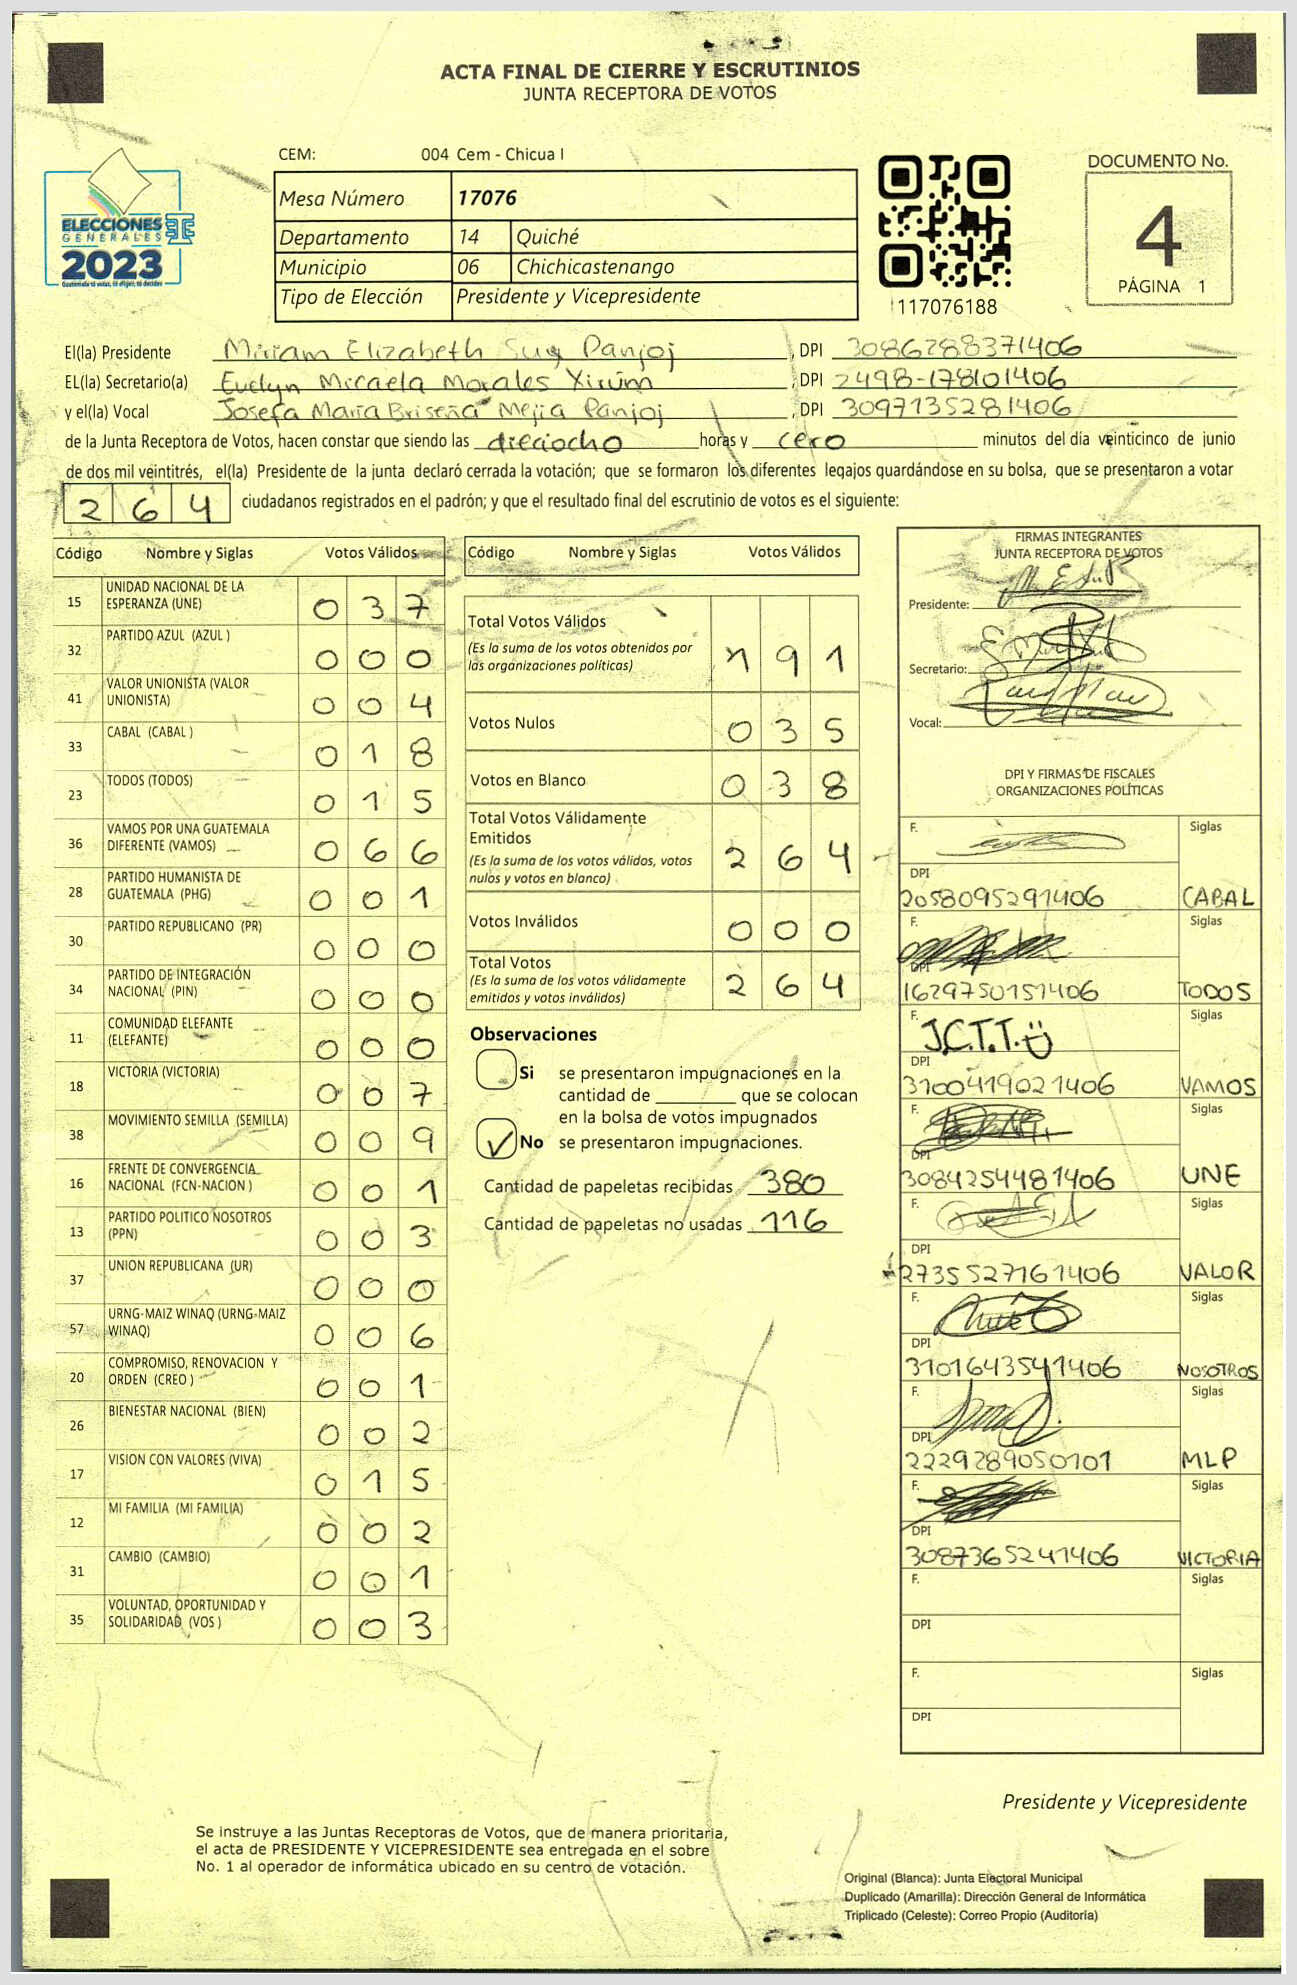 ACTA FINAL DE CIERRE Y ESCRUTINIOS
JUNTA RECEPTORA DE VOTOS
CEM: 004 Cem - Chicua I
DOCUMENTO No.
4
PÁGINA 1
ELECCIONES
GENERALES
2023
Mesa Número 17076
Departamento 14 Quiché
Municipio 06 Chichicastenango
Tipo de Elección Presidente y Vicepresidente
117076188
El(la) Presidente Miriam Elizabeth Suy Panjoj, DPI 3086288371406
EL(la) Secretario(a) Evelyn Micaela Morales Xirúm, DPI 2498-178101406
y el(la) Vocal Josefa María Briseña Mejia Panjoj, DPI 3097135281406
de la Junta Receptora de Votos, hacen constar que siendo las dieciocho horas y cero minutos del día veinticinco de junio
de dos mil veintitrés, el(la) Presidente de la junta declaró cerrada la votación; que se formaron los diferentes legajos guardándose en su bolsa, que se presentaron a votar
264 ciudadanos registrados en el padrón; y que el resultado final del escrutinio de votos es el siguiente:
Código Nombre y Siglas Votos Válidos
15 UNIDAD NACIONAL DE LA ESPERANZA (UNE) 037
32 PARTIDO AZUL (AZUL ) 000
41 VALOR UNIONISTA (VALOR UNIONISTA) 004
33 CABAL (CABAL ) 018
23 TODOS (TODOS) 015
36 VAMOS POR UNA GUATEMALA DIFERENTE (VAMOS) 066
28 PARTIDO HUMANISTA DE GUATEMALA (PHG) 001
30 PARTIDO REPUBLICANO (PR) 000
34 PARTIDO DE INTEGRACIÓN NACIONAL (PIN) 000
11 COMUNIDAD ELEFANTE (ELEFANTE) 000
18 VICTORIA (VICTORIA) 007
38 MOVIMIENTO SEMILLA (SEMILLA) 009
16 FRENTE DE CONVERGENCIA NACIONAL (FCN-NACION ) 001
13 PARTIDO POLITICO NOSOTROS (PPN) 003
37 UNION REPUBLICANA (UR) 000
57 URNG-MAIZ WINAQ (URNG-MAIZ WINAQ) 006
20 COMPROMISO, RENOVACION Y ORDEN (CREO ) 001
26 BIENESTAR NACIONAL (BIEN) 002
17 VISION CON VALORES (VIVA) 015
12 MI FAMILIA (MI FAMILIA) 002
31 CAMBIO (CAMBIO) 001
35 VOLUNTAD, OPORTUNIDAD Y SOLIDARIDAD (VOS ) 003
Código Nombre y Siglas Votos Válidos
Total Votos Válidos 191
(Es la suma de los votos obtenidos por
las organizaciones políticas)
Votos Nulos 035
Votos en Blanco 038
Total Votos Válidamente
Emitidos 264
(Es la suma de los votos válidos, votos
nulos y votos en blanco)
Votos Inválidos 000
Total Votos 264
(Es la suma de los votos válidamente
emitidos y votos inválidos)
Observaciones
Si se presentaron impugnaciones en la
cantidad de ________ que se colocan
en la bolsa de votos impugnados
No se presentaron impugnaciones.
Cantidad de papeletas recibidas 380
Cantidad de papeletas no usadas 116
FIRMAS INTEGRANTES
JUNTA RECEPTORA DE VOTOS
Presidente:
Secretario:
Vocal:
DPI Y FIRMAS DE FISCALES
ORGANIZACIONES POLÍTICAS
F. Siglas
DPI
2058095291406 CABAL
F. Siglas
DPI
1629750151406 TODOS
F. J.C.T.T. Siglas
DPI
3100419021406 VAMOS
F. Siglas
DPI
3084254481406 UNE
F. Siglas
DPI
2735527161406 VALOR
F. Siglas
DPI
3101643541406 NOSOTROS
F. Siglas
DPI
2229289050101 MLP
F. Siglas
DPI
3087365241406 VICTORIA
F. Siglas
DPI
F. Siglas
DPI
Presidente y Vicepresidente
Se instruye a las Juntas Receptoras de Votos, que de manera prioritaria,
el acta de PRESIDENTE Y VICEPRESIDENTE sea entregada en el sobre
No. 1 al operador de informática ubicado en su centro de votación.
Original (Blanca): Junta Electoral Municipal
Duplicado (Amarilla): Dirección General de Informática
Triplicado (Celeste): Correo Propio (Auditoría)